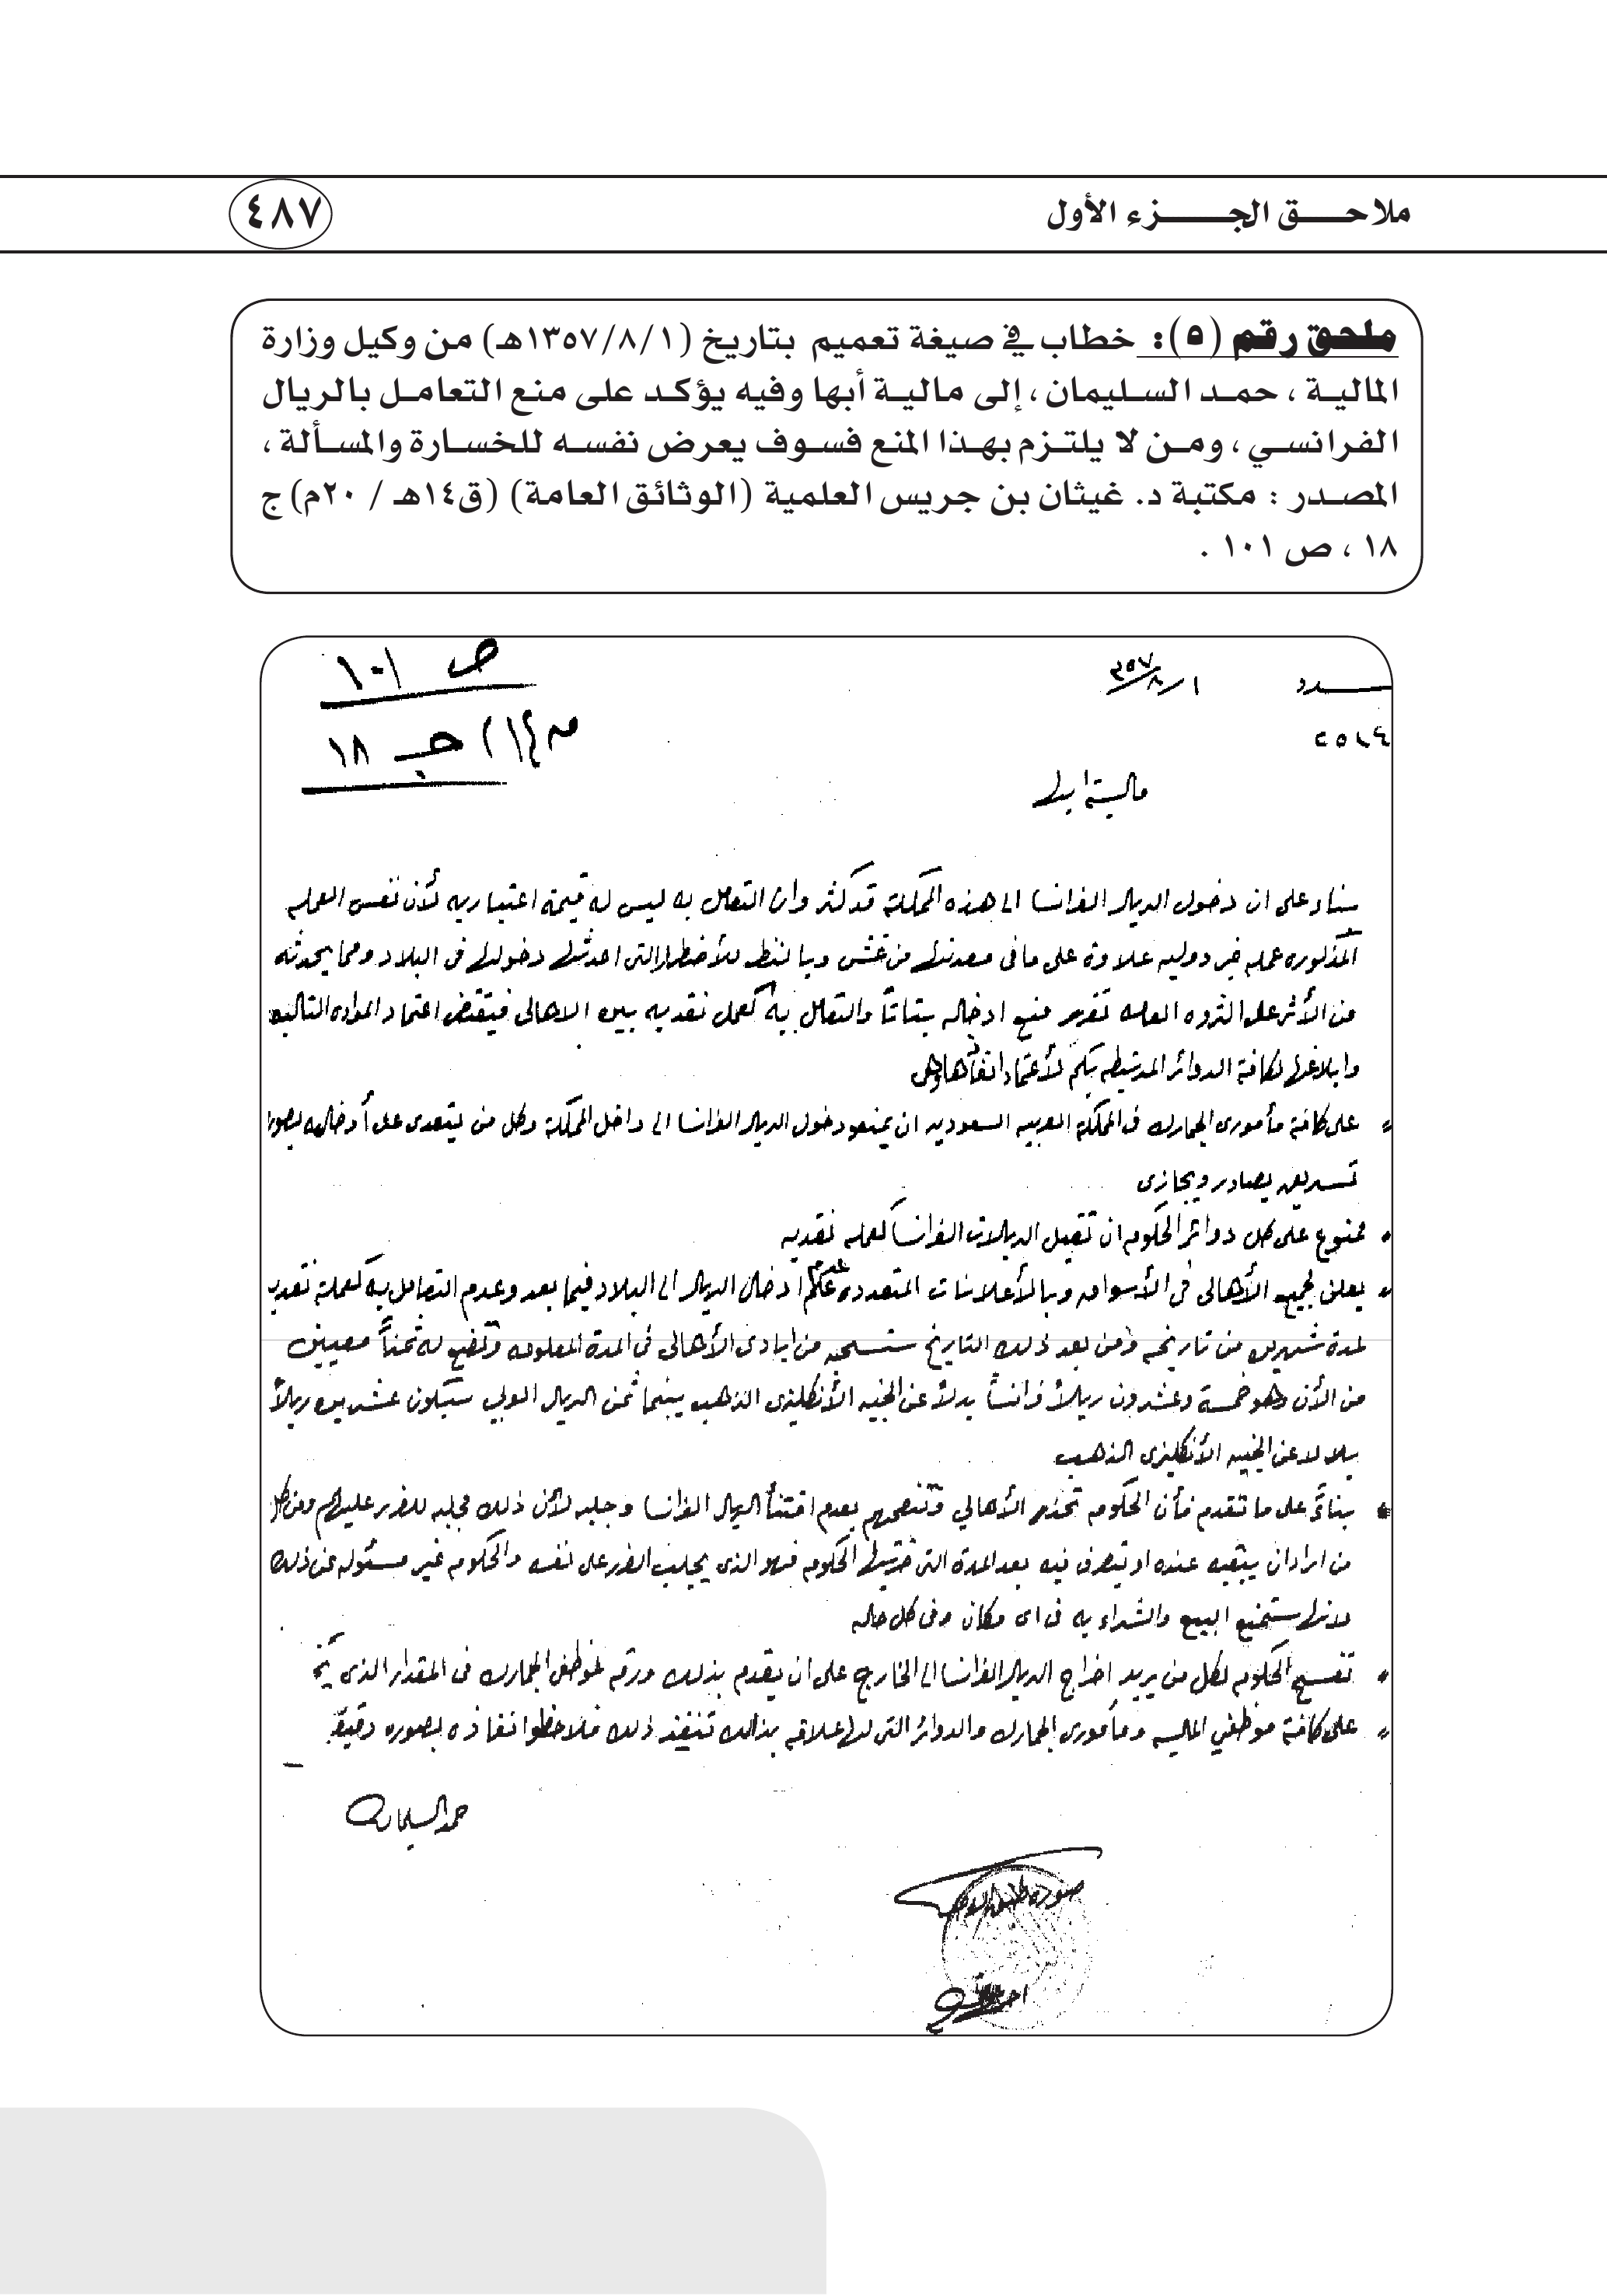 ملاحق الجزء الأول
٤٨٧
ملحق رقم (٥): خطاب في صيغة تعميم بتاريخ (١٣٥٧/٨/١هـ) من وكيل وزارة
المالية ، حمد السليمان ، إلى مالية أبها وفيه يؤكد على منع التعامل بالريال
الفرانسي ، ومن لا يلتزم بهذا المنع فسوف يعرض نفسه للخسارة والمسألة ،
المصدر : مكتبة د. غيثان بن جريس العلمية (الوثائق العامة) (ق١٤هـ / ٢٠م) ج
١٨ ، ص ١٠١ .
ص ١٠١
ج ١٨
عدد
٣٥٧/٨/١
مالية ابها
بناء على ان دخول الريال الفرانسا الى هذه المملكة قد كثر وان التعامل به ليس له قيمة اعتباريه لأن نفس العمله
المذكوره عمله غير دوليه علاوة على ما في معدنها من غش وبالنظر للأضطراب التي احدثها دخولها في البلاد ومما يحدثه
من الأثر على الثروه العامه تقرر منع ادخاله بتاتاً والتعامل به كعمله نقديه بين الاهالي فيقتضى اعتماد المواد التاليه
وابلاغها لكافة الدوائر المرتبطه بكم لأعتماد انفاذها وهى
على كافة مأمورى الجمارك في المملكة العربيه السعوديه ان يمنعو دخول الريال الفرانسا الى داخل المملكة وكل من يتعدى على أدخاله بصورة
تهريب يصادر ويجازى
ممنوع على كل دوائر الحكومه ان تقبل الريالات الفرانسا كعمله نقديه
يعلن لجميع الأهالى في الأسواق وبالأعلانات المتعدده عدم ادخال الريال الى البلاد فيما بعد وعدم التعامل به كعملة نقديه
لمدة شهرين من تاريخه ومن بعد ذلك التاريخ من ايادى الأهالى في المدة المعلومه وتضع له ثمناً معين
من الأن وهو خمسة وعشرون ريالاً فرانساً بدلاً عن الجنيه الأنكليزى الذهب بينما ثمن الريال العربي سيكون عشرين ريالاً
بدلا عن الجنيه الأنكليزى الذهب
بناءً على ما تقدم فأن الحكومه تحذر الأهالي وتنصحهم بعدم اقتنأ الريال الفرانسا وجلبه لأن ذلك مجلبه للضرر عليهم ومن كل
من اراد ان يبقيه عنده او يتصرف فيه بعد المدة التي الحكومه فهو الذى يجلب الضرر على نفسه والحكومه غير مسئوله عن ذلك
لانها ستمنع البيع والشراء به في اى مكان وفى كل حاله
تفسح الحكومه لكل من يريد اخراج الريال الفرانسا الى الخارج على ان يقدم بذلك ورقه لموظفى الجمارك في المقدار الذى
على كافة موظفي الماليه ومأمورى الجمارك والدوائر التى لها علاقه بذالك تنفيذ ذلك فلاحظوا نفاذه بصوره دقيقه
حمد السليمان
صوره طبق الاصل